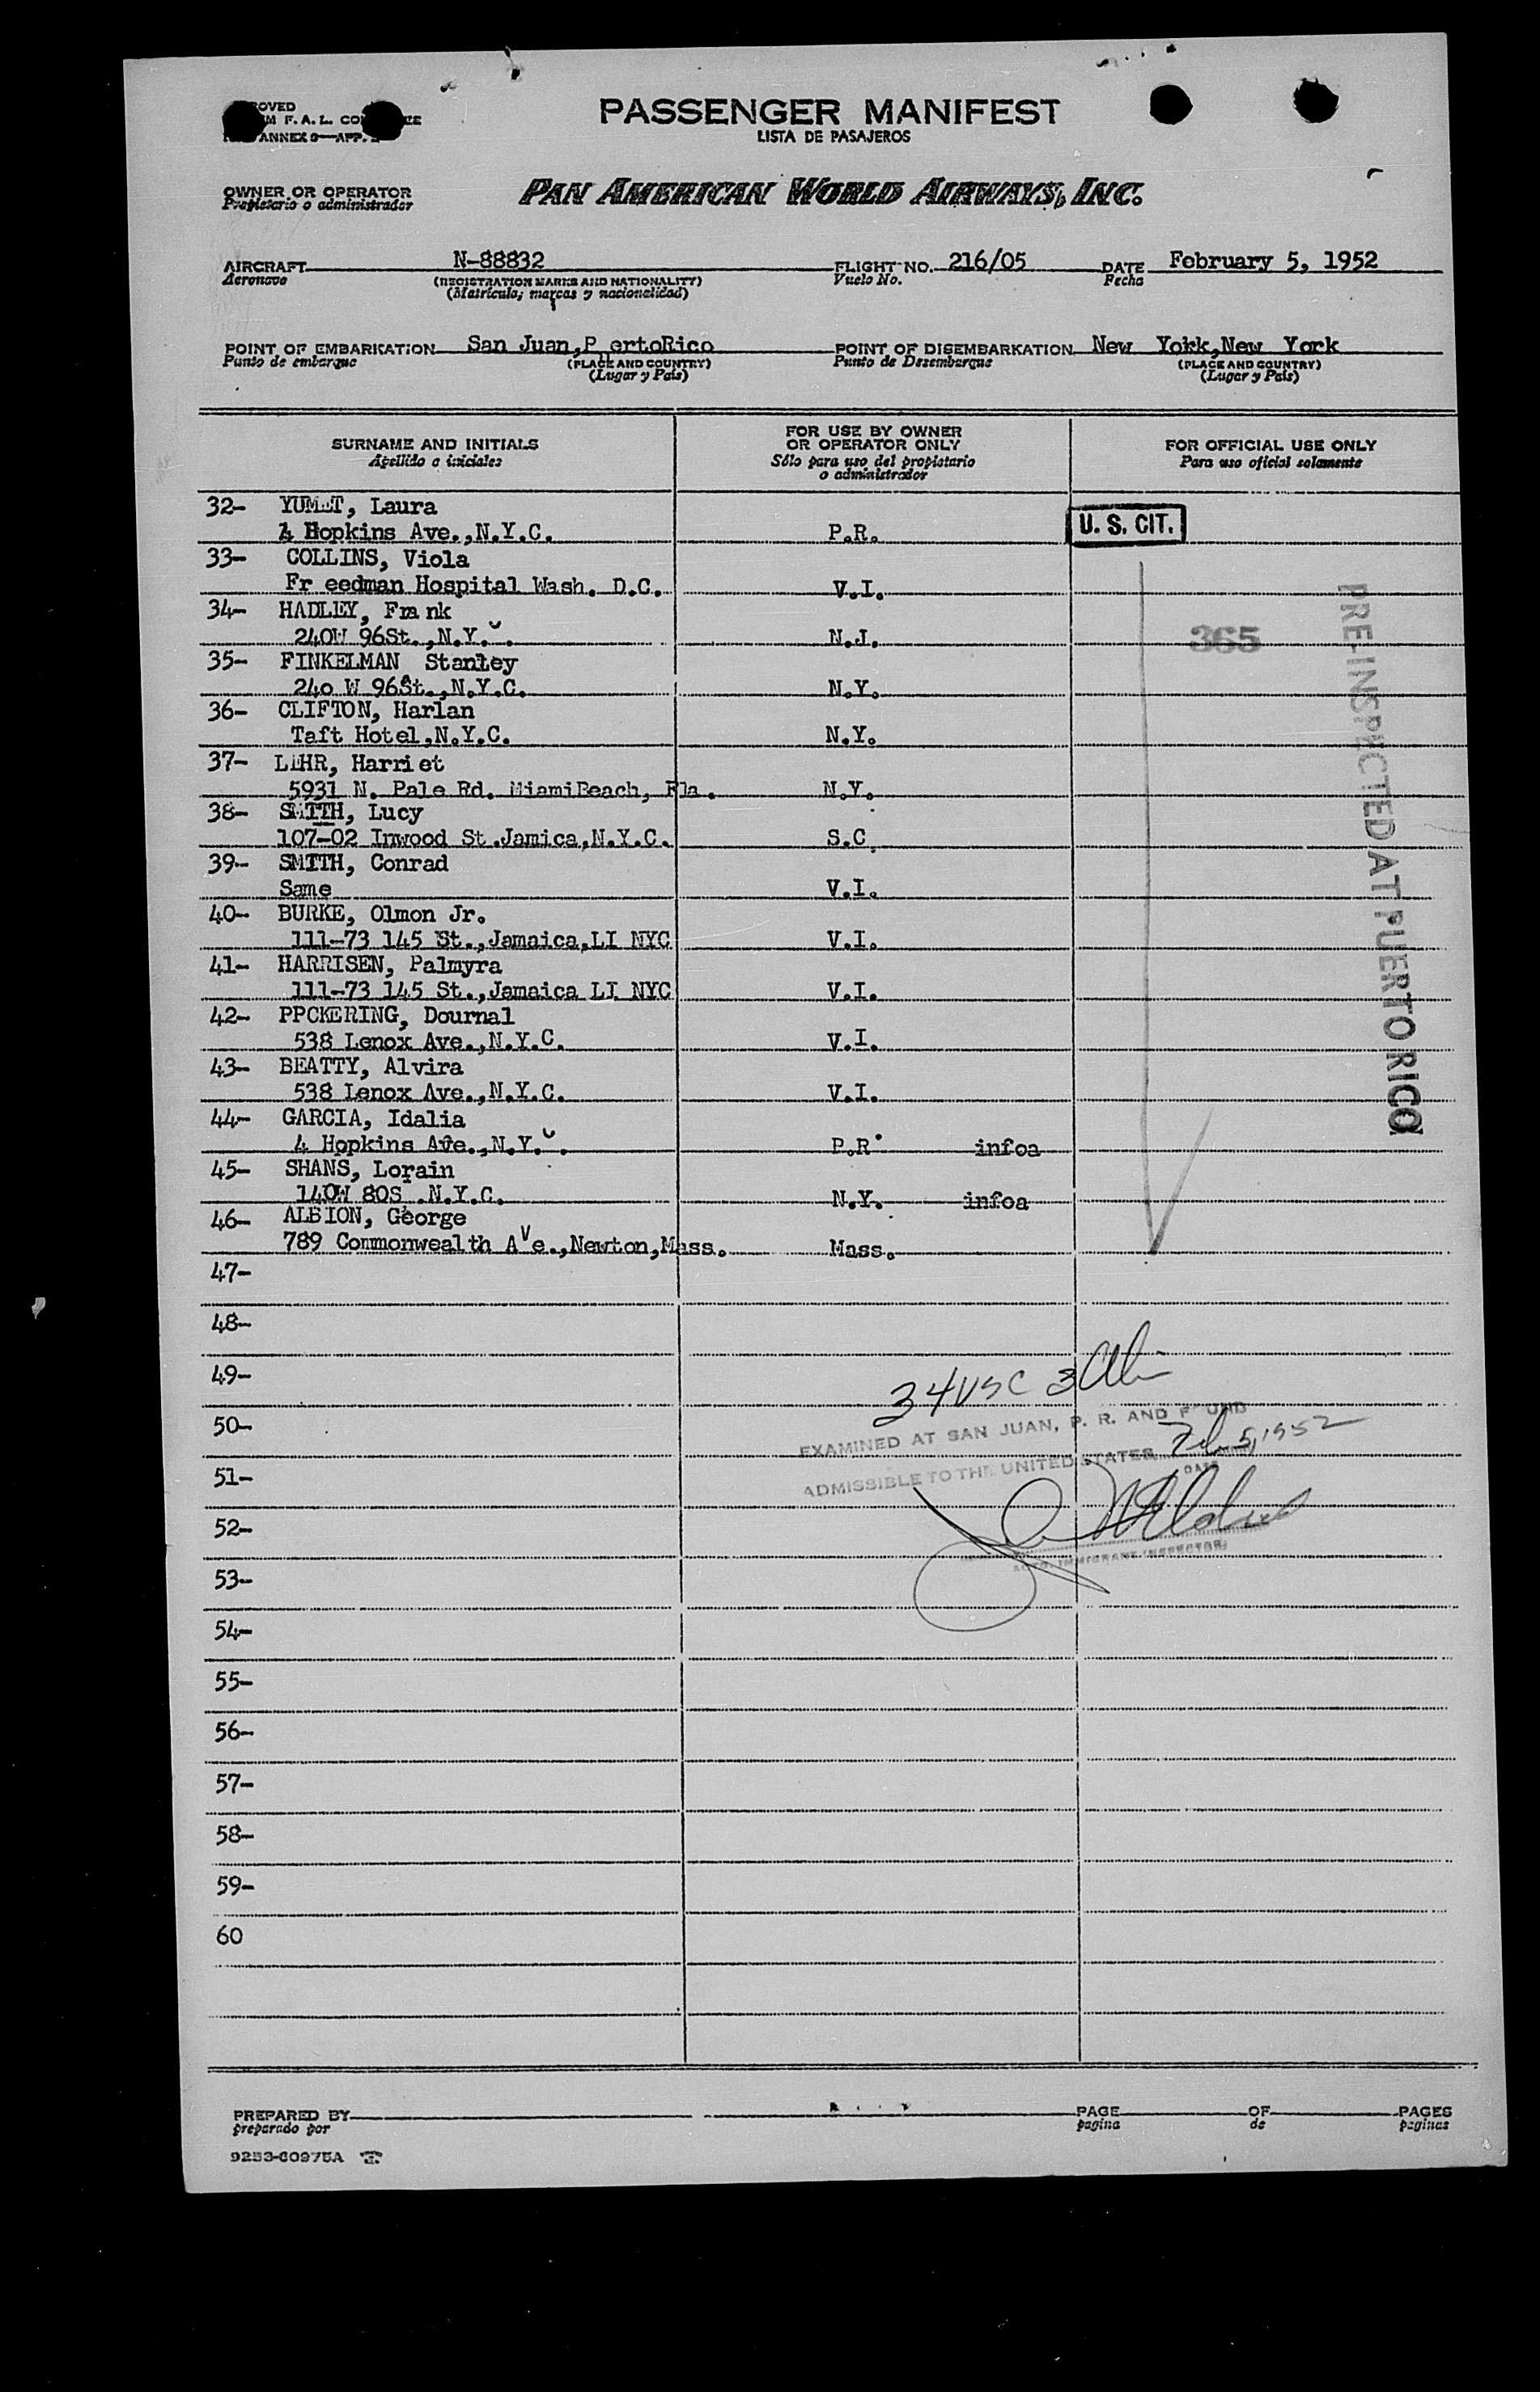 PASSENGER MANIFEST
LISTA DE PASAJEROS
OVED
M F.A.L.
ANNEX 9—APP.
OWNER OR OPERATOR
Propietario o administrador
PAN AMERICAN WORLD AIRWAYS, INC.
AIRCRAFT N-88832 FLIGHT NO. 216/05 DATE February 5, 1952
Aeronave (REGISTRATION MARKS AND NATIONALITY) Vuelo No. Fecha
(Matrícula, marcas y nacionalidad)
POINT OF EMBARKATION San Juan,P ertoRico POINT OF DISEMBARKATION New York,New York
Punto de embarque (PLACE AND COUNTRY) Punto de Desembarque (PLACE AND COUNTRY)
(Lugar y País) (Lugar y País)
SURNAME AND INITIALS FOR USE BY OWNER OR OPERATOR ONLY FOR OFFICIAL USE ONLY
Apellido e iniciales Sólo para uso del propietario o administrador Para uso oficial solamente
32- YUMET, Laura
4 Hopkins Ave.,N.Y.C. P.R. U. S. CIT.
33- COLLINS, Viola
Fr eedman Hospital Wash. D.C. V.I.
34- HADLEY, Frank
240W 96St.,N.Y.C. N.J. 365
35- FINKELMAN Stanley
24o W 96St.,N.Y.C. N.Y.
36- CLIFTON, Harlan
Taft Hotel,N.Y.C. N.Y.
37- LEHR, Harriet
5931 N. Pale Rd. MiamiBeach, Fla. N.Y.
38- SMITH, Lucy
107-02 Inwood St.Jamica,N.Y.C. S.C.
39- SMITH, Conrad
Same V.I.
40- BURKE, Olmon Jr.
111-73 145 St.,Jamaica,LI NYC V.I.
41- HARRISEN, Palmyra
111-73 145 St.,Jamaica LI NYC V.I.
42- PPCKERING, Dournal
538 Lenox Ave.,N.Y.C. V.I.
43- BEATTY, Alvira
538 Lenox Ave.,N.Y.C. V.I.
44- GARCIA, Idalia
4 Hopkins Ave.,N.Y.C. P.R. infoa
45- SHANS, Lorain
140W 80S .N.Y.C. N.Y. infoa
46- ALBION, George
789 Commonwealth Ave.,Newton,Mass. Mass.
PRE-INSPECTED AT PUERTO RICO
47-
48-
49-
34 USC 3 Ali
50-
EXAMINED AT SAN JUAN, P. R. AND FOUND
ADMISSIBLE TO THE UNITED STATES Feb 5, 1952
DATE
51-
52-
IMMIGRANT INSPECTOR
53-
54-
55-
56-
57-
58-
59-
60
PREPARED BY PAGE OF PAGES
preparado por pagina de paginas
9253-60975A